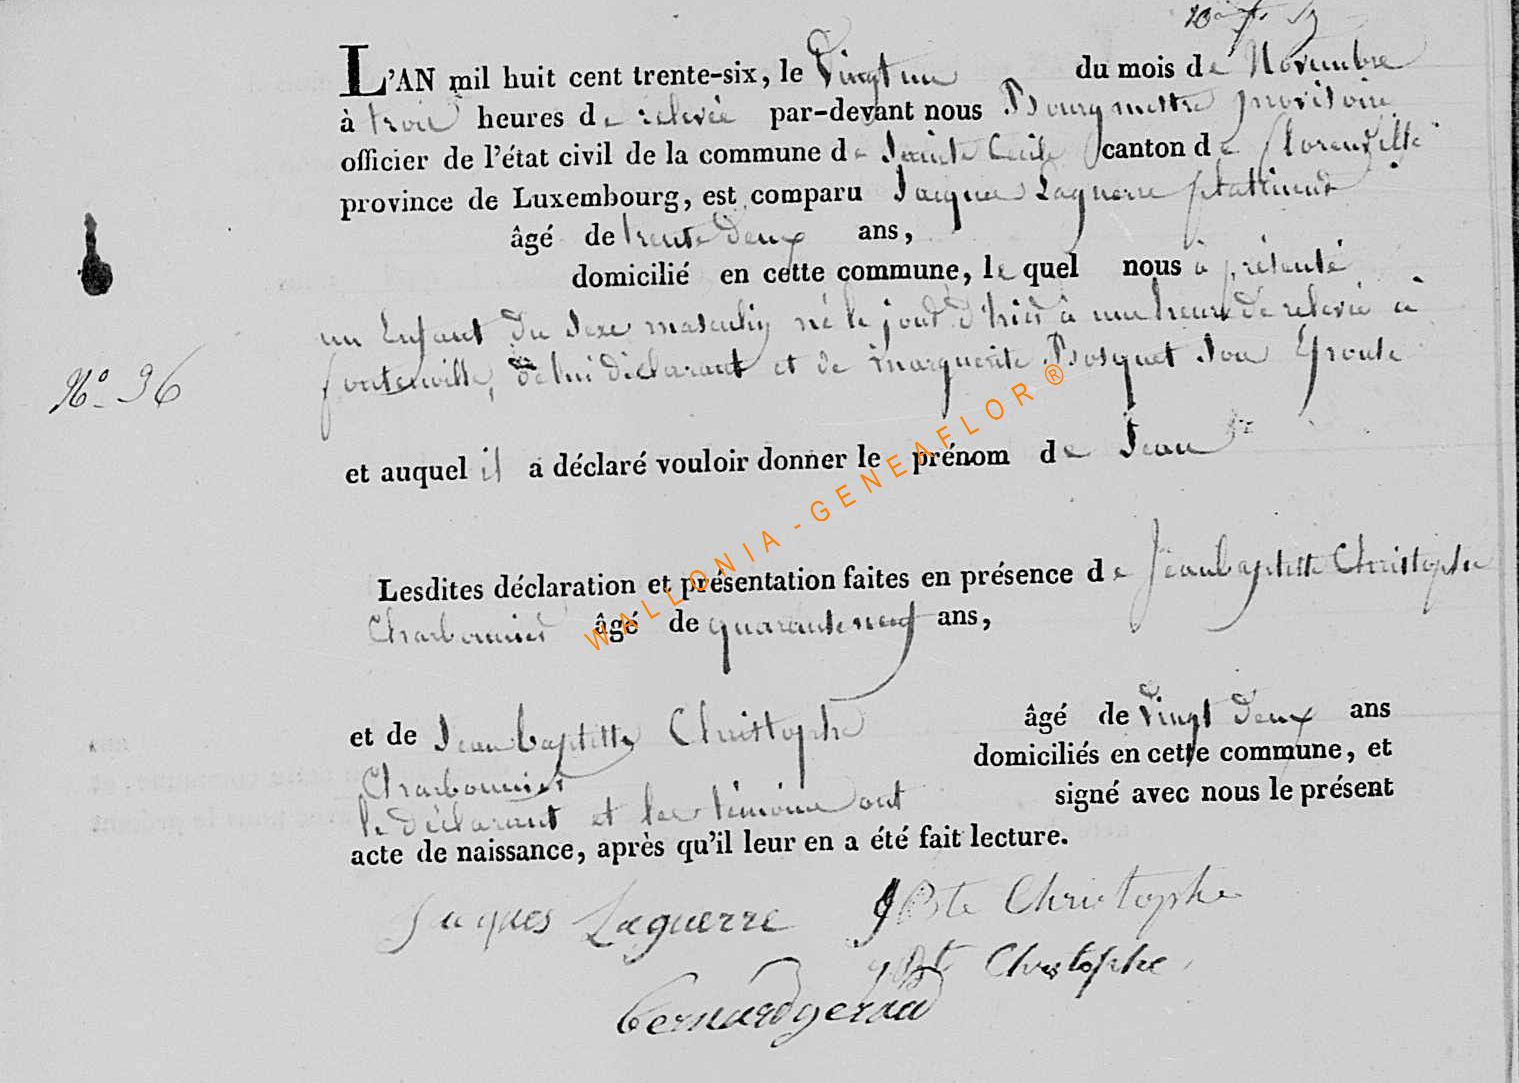 L'AN mil huit cent trente-six, le Vingt un du mois de Novembre
à trois heures de relevée par-devant nous Bourgmestre provisoire
officier de l'état civil de la commune de Sainte Cecile canton de florenville
province de Luxembourg, est comparu Jacques Laguerre platineur
âgé de trente deux ans,
domicilié en cette commune, le quel nous a présenté
un Enfant du sexe masculin né le jour d'hier à une heure de relevée à
fontenville, de lui déclarant et de marguerite Bosquet son Epouse
N° 36
et auquel il a déclaré vouloir donner le prénom de Jean
Lesdites déclaration et présentation faites en présence de Jean baptiste Christophe
Charbonnier âgé de quarante neuf ans,
et de Jean baptiste Christophe âgé de vingt deux ans
Charbonnier domiciliés en cette commune, et
le déclarant et les témoins ont signé avec nous le présent
acte de naissance, après qu'il leur en a été fait lecture.
Jacques Laguerre JBte Christophe
JBt Christophe
WALLONIA - GENEAFLOR ®